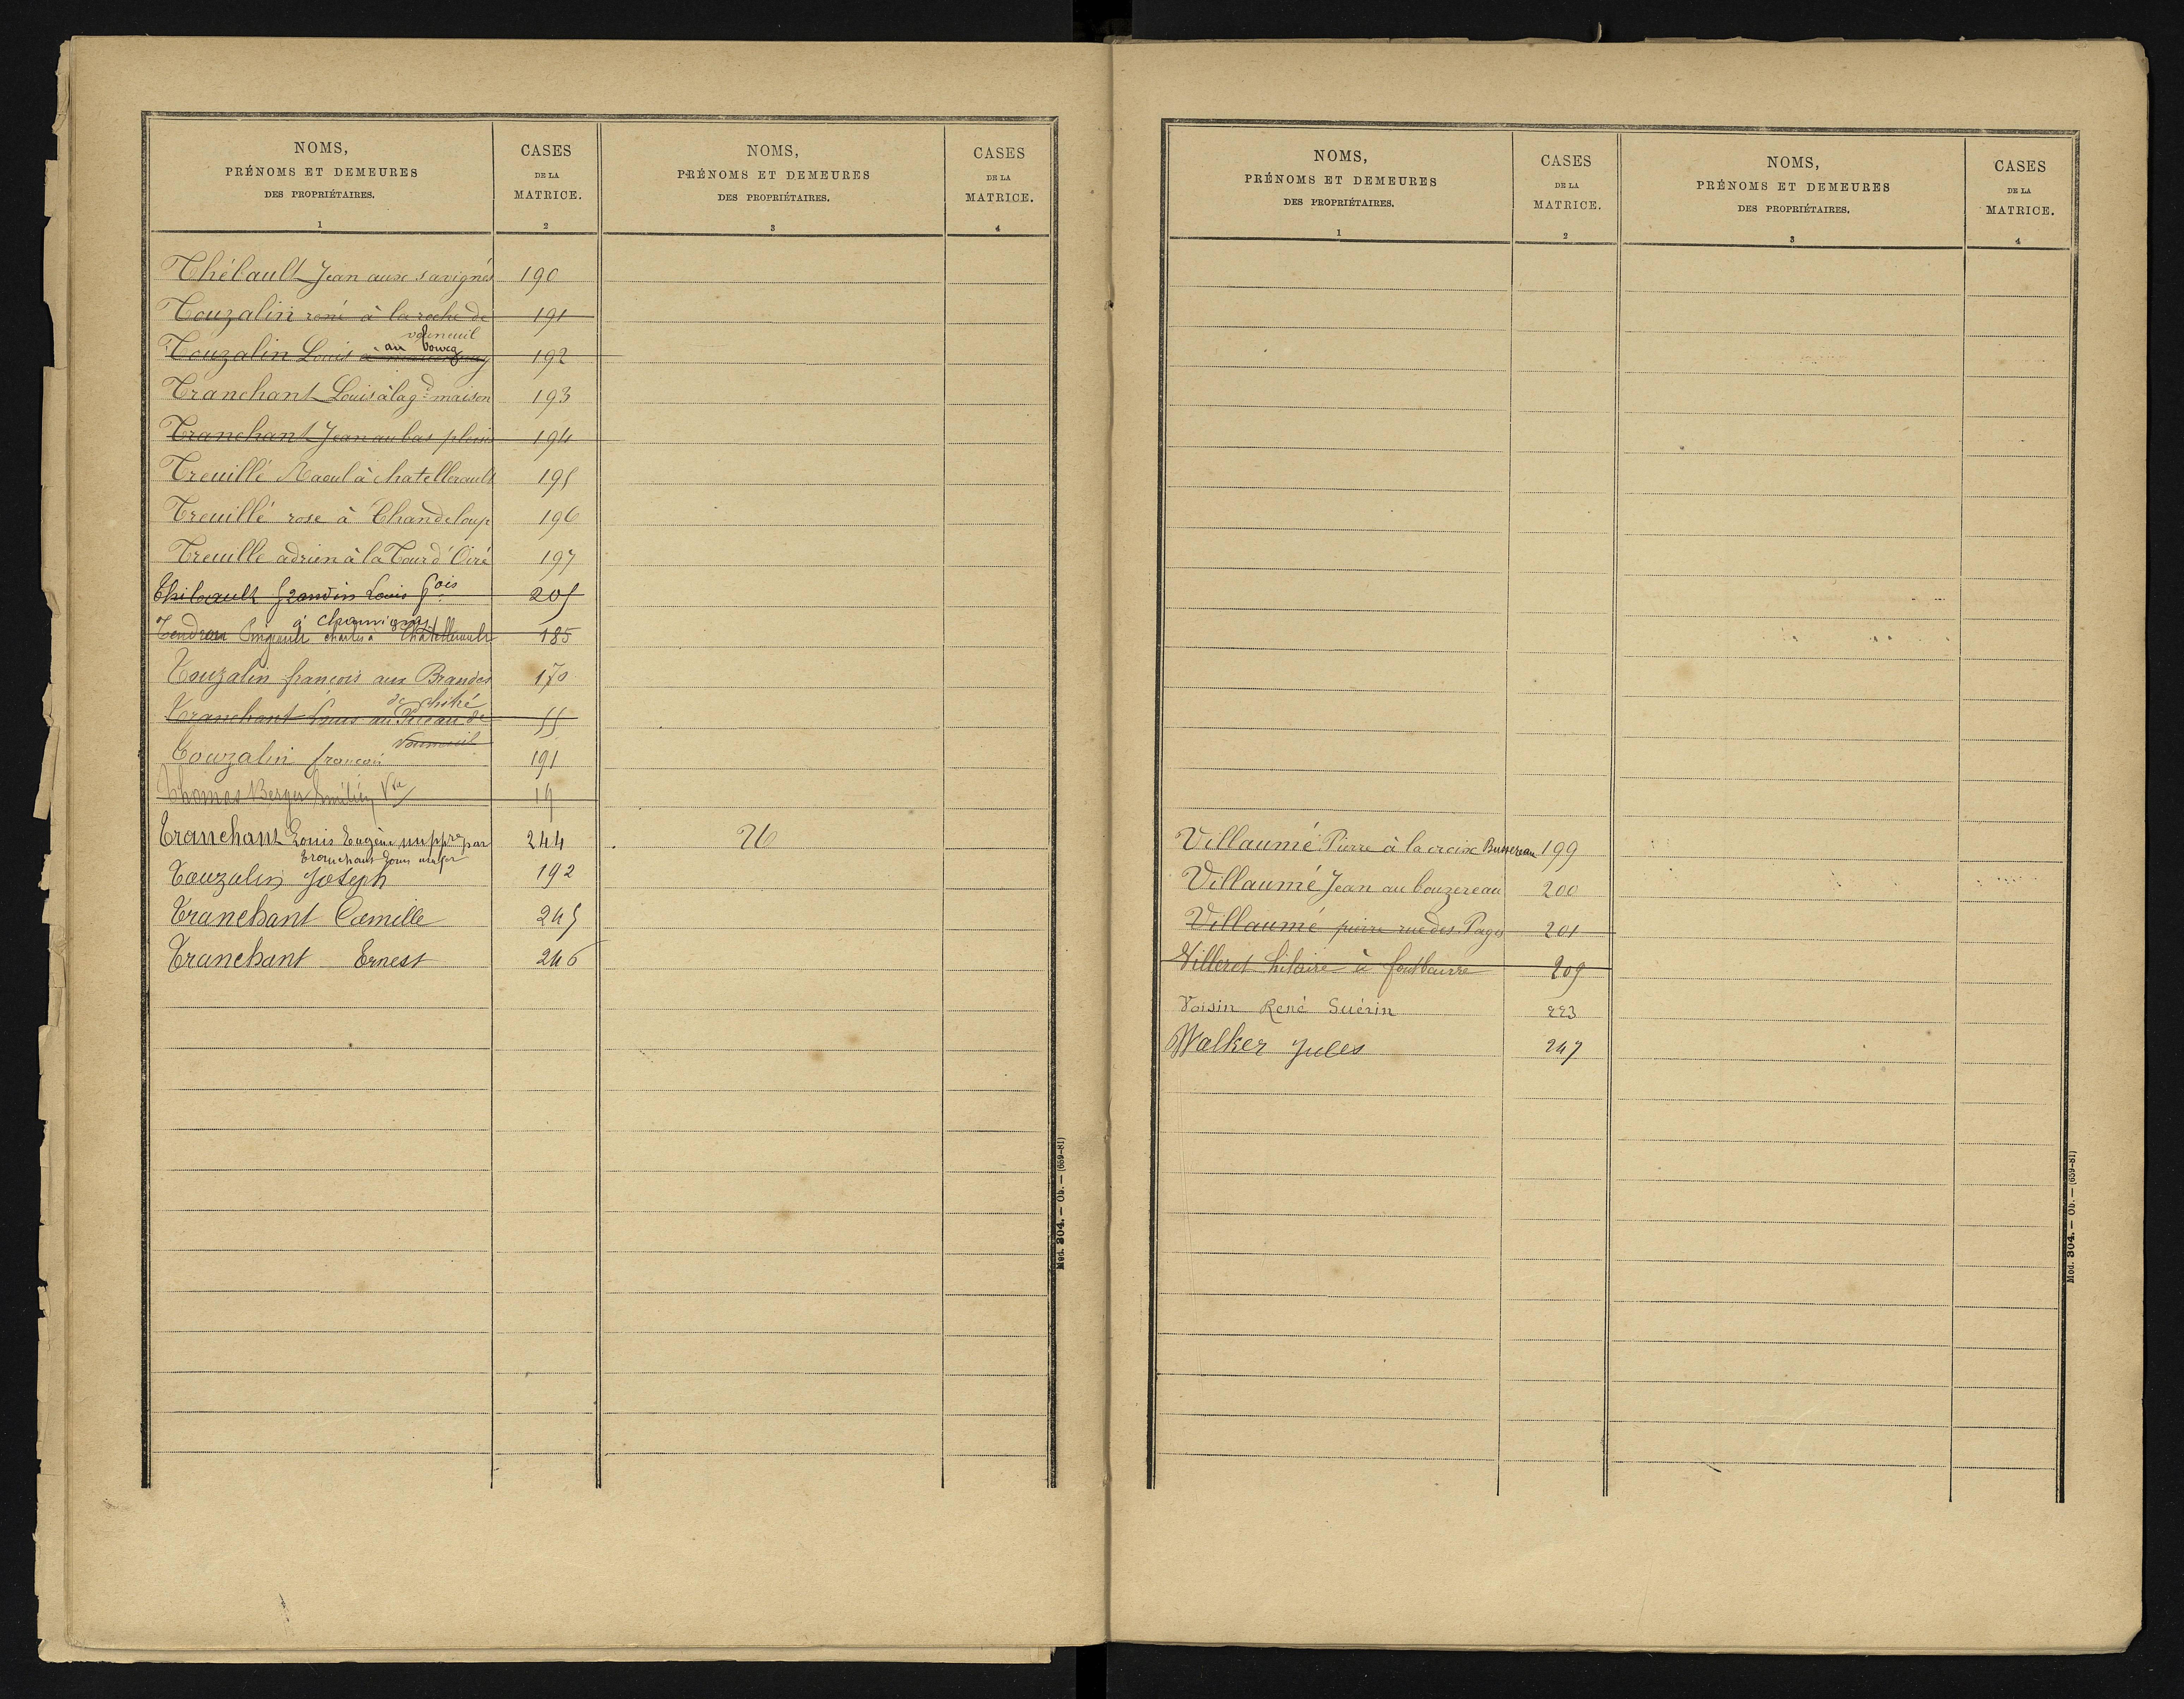 NOMS,
PRÉNOMS ET DEMEURES
DES PROPRIÉTAIRES.
1
CASES
DE LA
MATRICE.
2
NOMS,
PRÉNOMS ET DEMEURES
DES PROPRIÉTAIRES.
3
CASES
DE LA
MATRICE.
4
Thébault Jean aux savignés 190
Touzalin réné à la roche de 191
vouneuil
au bourg
Touzalin Louis à 192
Tranchant Louis à la gde maison 193
Tranchant Jean au bas plessis 194
Treuillé Raoul à chatellerault 195
Treuillé rose à Chandeloup 196
Treuille adrien à la Tour d'Oiré 197
Thibault Grandin Louis fois 205
à
Tendron charles à Chatellerault 185
Touzalin francois aux Brandes 170
de chiré
Tranchant Louis au de 55
Vouneuil
Touzalin francois 191
Thomas Berger Vve 19
Tranchant Louis Eugène nu pp.re par 244 26
Tranchant Louis usufer
Touzalin Joseph 192
Tranchant Camille 245
Tranchant Ernest 246
Mod. 304. — Ob. — (659-81)
NOMS,
PRÉNOMS ET DEMEURES
DES PROPRIÉTAIRES.
1
CASES
DE LA
MATRICE.
2
NOMS,
PRÉNOMS ET DEMEURES
DES PROPRIÉTAIRES.
3
CASES
DE LA
MATRICE.
4
Villaumé Pierre à la croix Buzereau 199
Villaumé Jean au bouzereau 200
Villaumé pierre rue des Pages 201
Villeret hilaire à fontbeurre 209
Voisin René Guérin 223
Walker Jules 247
Mod. 304. — Ob. — (659-81)